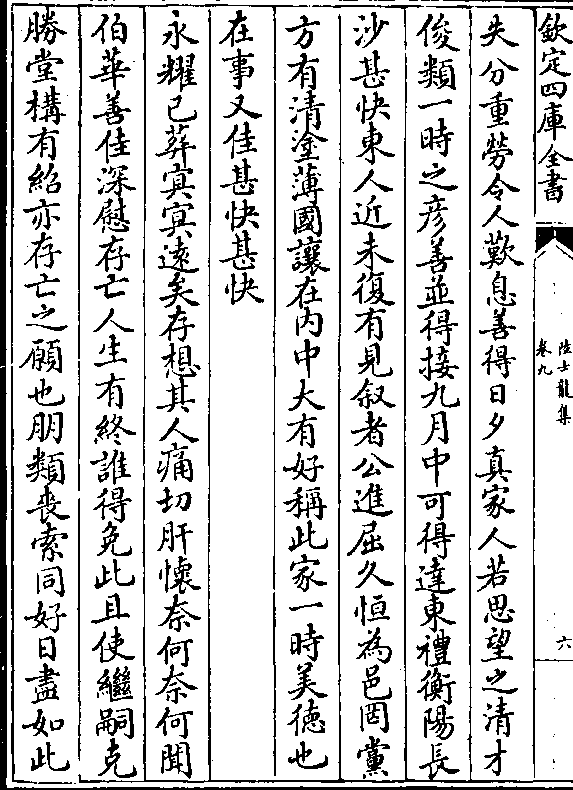 欽定四庫全書
陸士龍集
卷九
六
失分重勞令人歎息善得日夕真家人若思望之清才
俊類一時之彦善並得接九月中可得達東禮衡陽長
沙甚快東人近未復有見叙者公進屈久恒為邑罔黨
方有清塗薄國讓在內中大有好稱此家一時美徳也
在事又佳甚快甚快
永耀已葬冥冥遠矣存想其人痛切肝懷奈何奈何聞
伯華善佳深慰存亡人生有終誰得免此且使繼嗣克
勝堂構有紹亦存亡之願也朋類喪索同好日盡如此